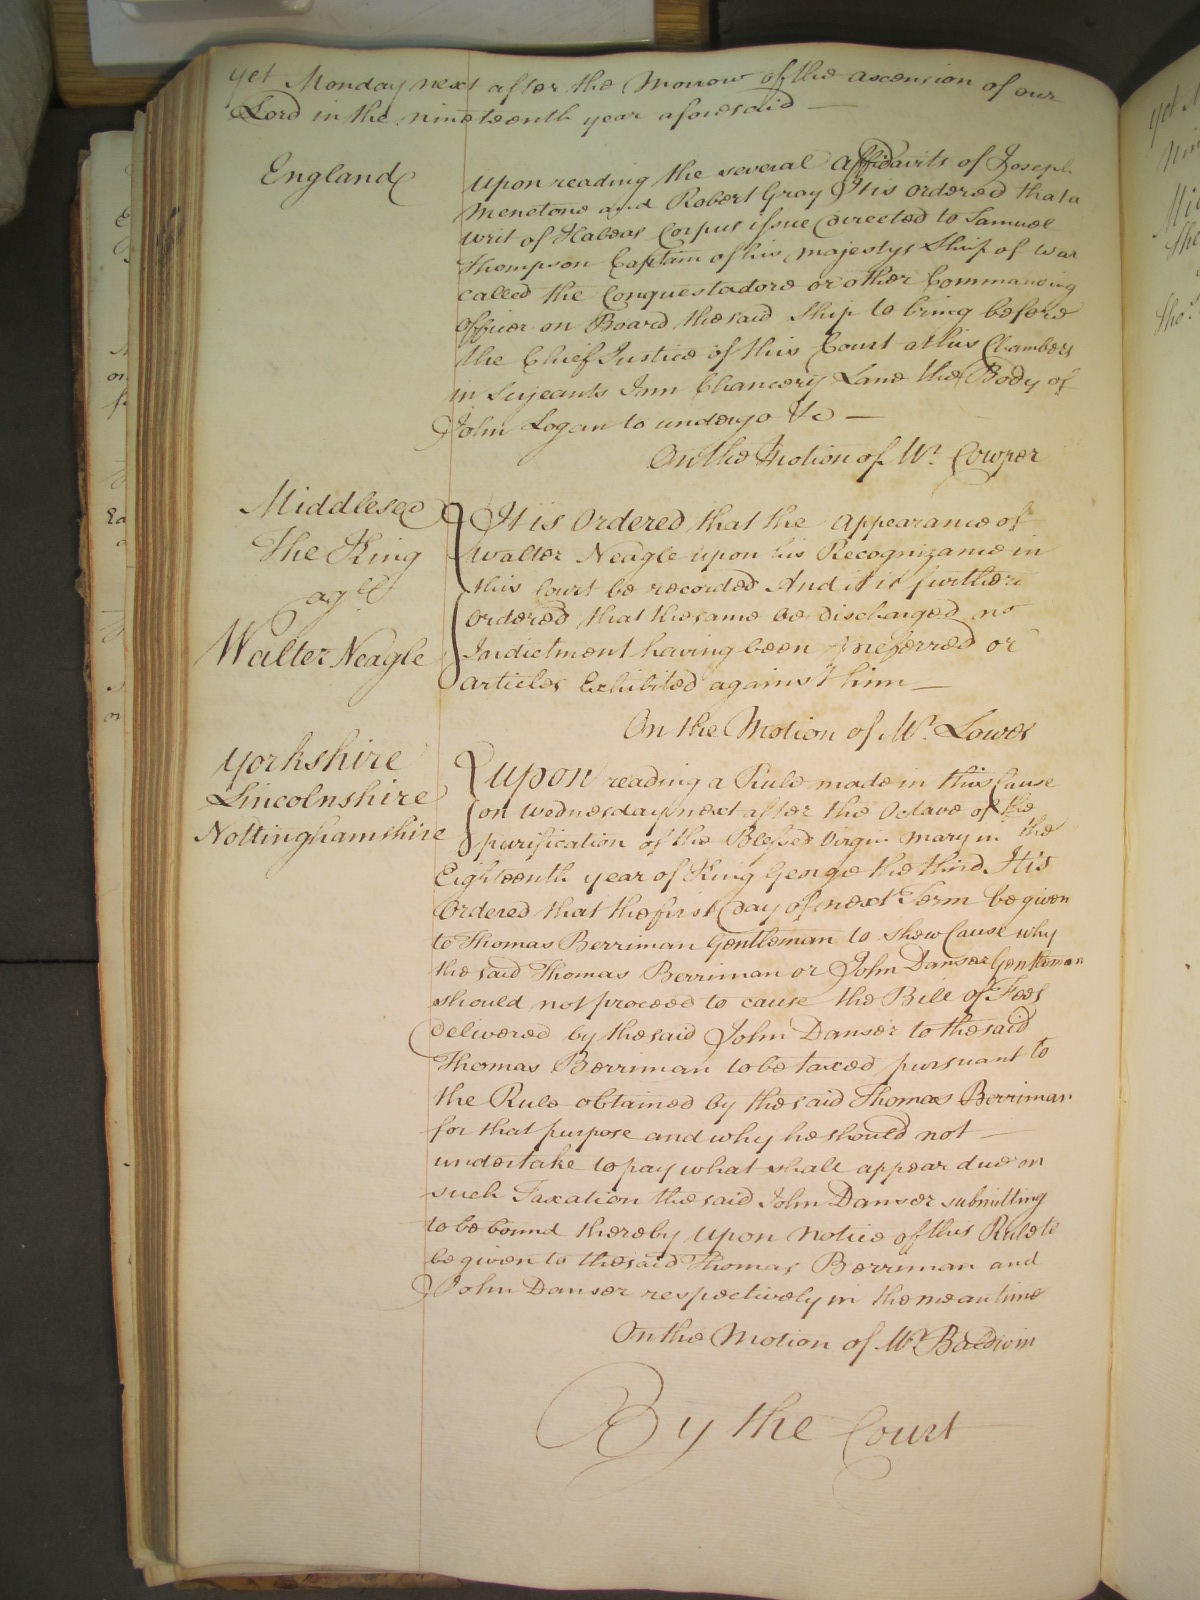 yet Monday next after the Morrow of the ascension of our
Lord in the nineteenth year aforesaid —
England
upon reading the several affidavits of Joseph
Menetone and Robert Gray It is ordered that a
writ of Habeas Corpus issue directed to Samuel
Thompson Captain of his majestys Ship of war
called the Conquestadore or other Commanding
officer on Board the said Ship to bring before
the Chief Justice of this Court at his Chambers
in Serjeants Inn Chancery Lane the Body of
John Logan to undergo &c —
On the Motion of Mr. Cowper
Middlesex
The King
agt
Walter Neagle
It is Ordered that the appearance of
Walter Neagle upon his Recognizance in
this Court be recorded And it is further
ordered that the same be discharged no
Indictment having been preferred or
articles Exhibited against him —
On the Motion of Mr. Lowes
Yorkshire
Lincolnshire
Nottinghamshire
upon reading a Rule made in this Cause
on Wednesday next after the Octave of the
purification of the Blessed Virgin Mary in the
Eighteenth year of King George the third It is
Ordered that the first Day of next Term be given
to Thomas Berriman Gentleman to shew Cause why
the said Thomas Berriman or John Danser Gentleman
should not proceed to cause the Bill of Fees
delivered by the said John Danser to the said
Thomas Berriman to be taxed pursuant to
the Rule obtained by the said Thomas Berriman
for that purpose and why he should not —
undertake to pay what shall appear due on
such Taxation the said John Danser submitting
to be bound thereby upon notice of this Rule to
be given to the said Thomas Berriman and
John Danser respectively in the mean time
On the Motion of Mr. Baldwin
By the Court